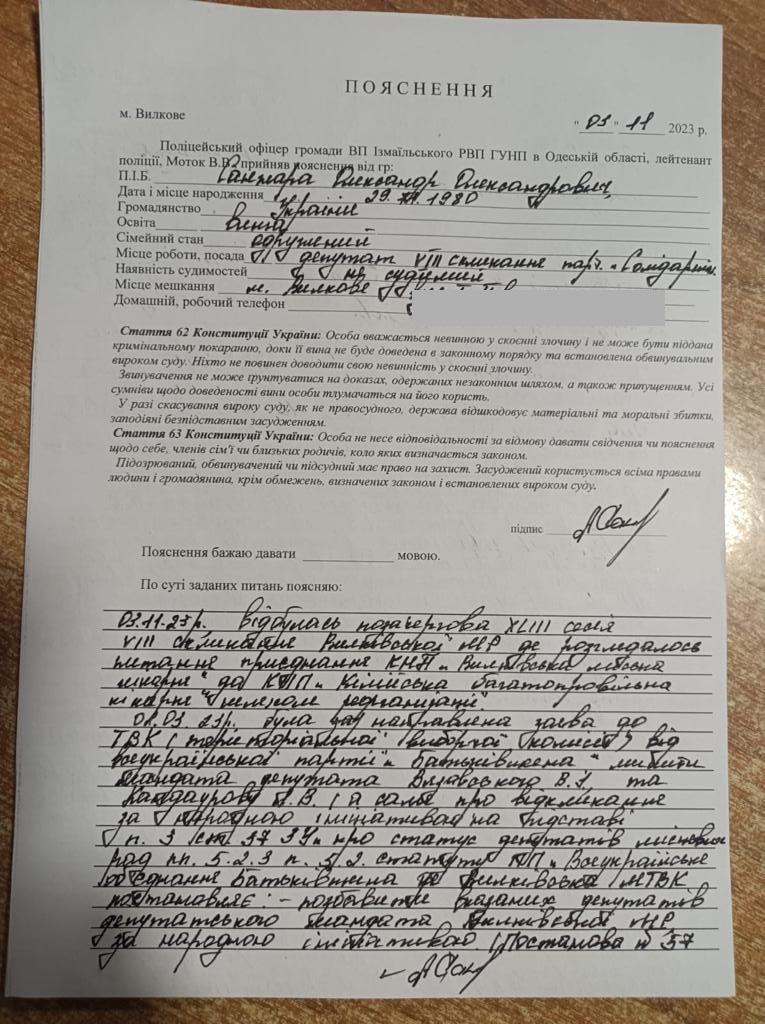 ПОЯСНЕННЯ
м. Вилкове
"03" 11 2023 р.
Поліцейський офіцер громади ВП Ізмаїльського РВП ГУНП в Одеській області, лейтенант
поліції, Моток В.В. прийняв пояснення від гр:
П.І.Б. Олександр Олександрович
Дата і місце народження 29. 1980
Громадянство України
Освіта
Сімейний стан одружений
Місце роботи, посада депутат VIII скликання парт. "Солідарність
Наявність судимостей не судимий
Місце мешкання м. Вилкове
Домашній, робочий телефон
Стаття 62 Конституції України: Особа вважається невинною у скоєнні злочину і не може бути піддана
кримінальному покаранню, доки її вина не буде доведена в законному порядку та встановлена обвинувальним
вироком суду. Ніхто не повинен доводити свою невинність у скоєнні злочину.
Звинувачення не може ґрунтуватися на доказах, одержаних незаконним шляхом, а також припущенням. Усі
сумніви щодо доведеності вини особи тлумачаться на його користь.
У разі скасування вироку суду, як не правосудного, держава відшкодовує матеріальні та моральні збитки,
заподіяні безпідставним засудженням.
Стаття 63 Конституції України: Особа не несе відповідальності за відмову давати свідчення чи пояснення
щодо себе, членів сім'ї чи близьких родичів, коло яких визначається законом.
Підозрюваний, обвинувачений чи підсудний має право на захист. Засуджений користується всіма правами
людини і громадянина, крім обмежень, визначених законом і встановлених вироком суду.
підпис
Пояснення бажаю давати мовою.
По суті заданих питань поясняю:
03.11.23 р. відбулась позачергова XLIII сесія
VIII скликання Вилківської МР де розглядалось
питання приєднання КНП "Вилківська міська
лікарня" до КНП "Кілійська багатопровільна
лікарня" шляхом реорганізації.
03 23р. була направлена заява до
ТВК (територіальної виборчої комісії) від
Всеукраїнської партії "Батьківщина"
мандата депутата В.І. та
Кандаурову В. а саме про відкликання
за народною ініціативою на підставі
п. 3 ст. 37 ЗУ "про статус депутатів місцевих
рад пп. 5.2.3 п. 5.2. статуту ПП "Всеукраїнське
об'єднання Батьківщина Вилківська МТВК
постановляє: - позбавити вказаних депутатів
депутатського мандата Вилківської МР
за народною ініціативою. (Постанова №57